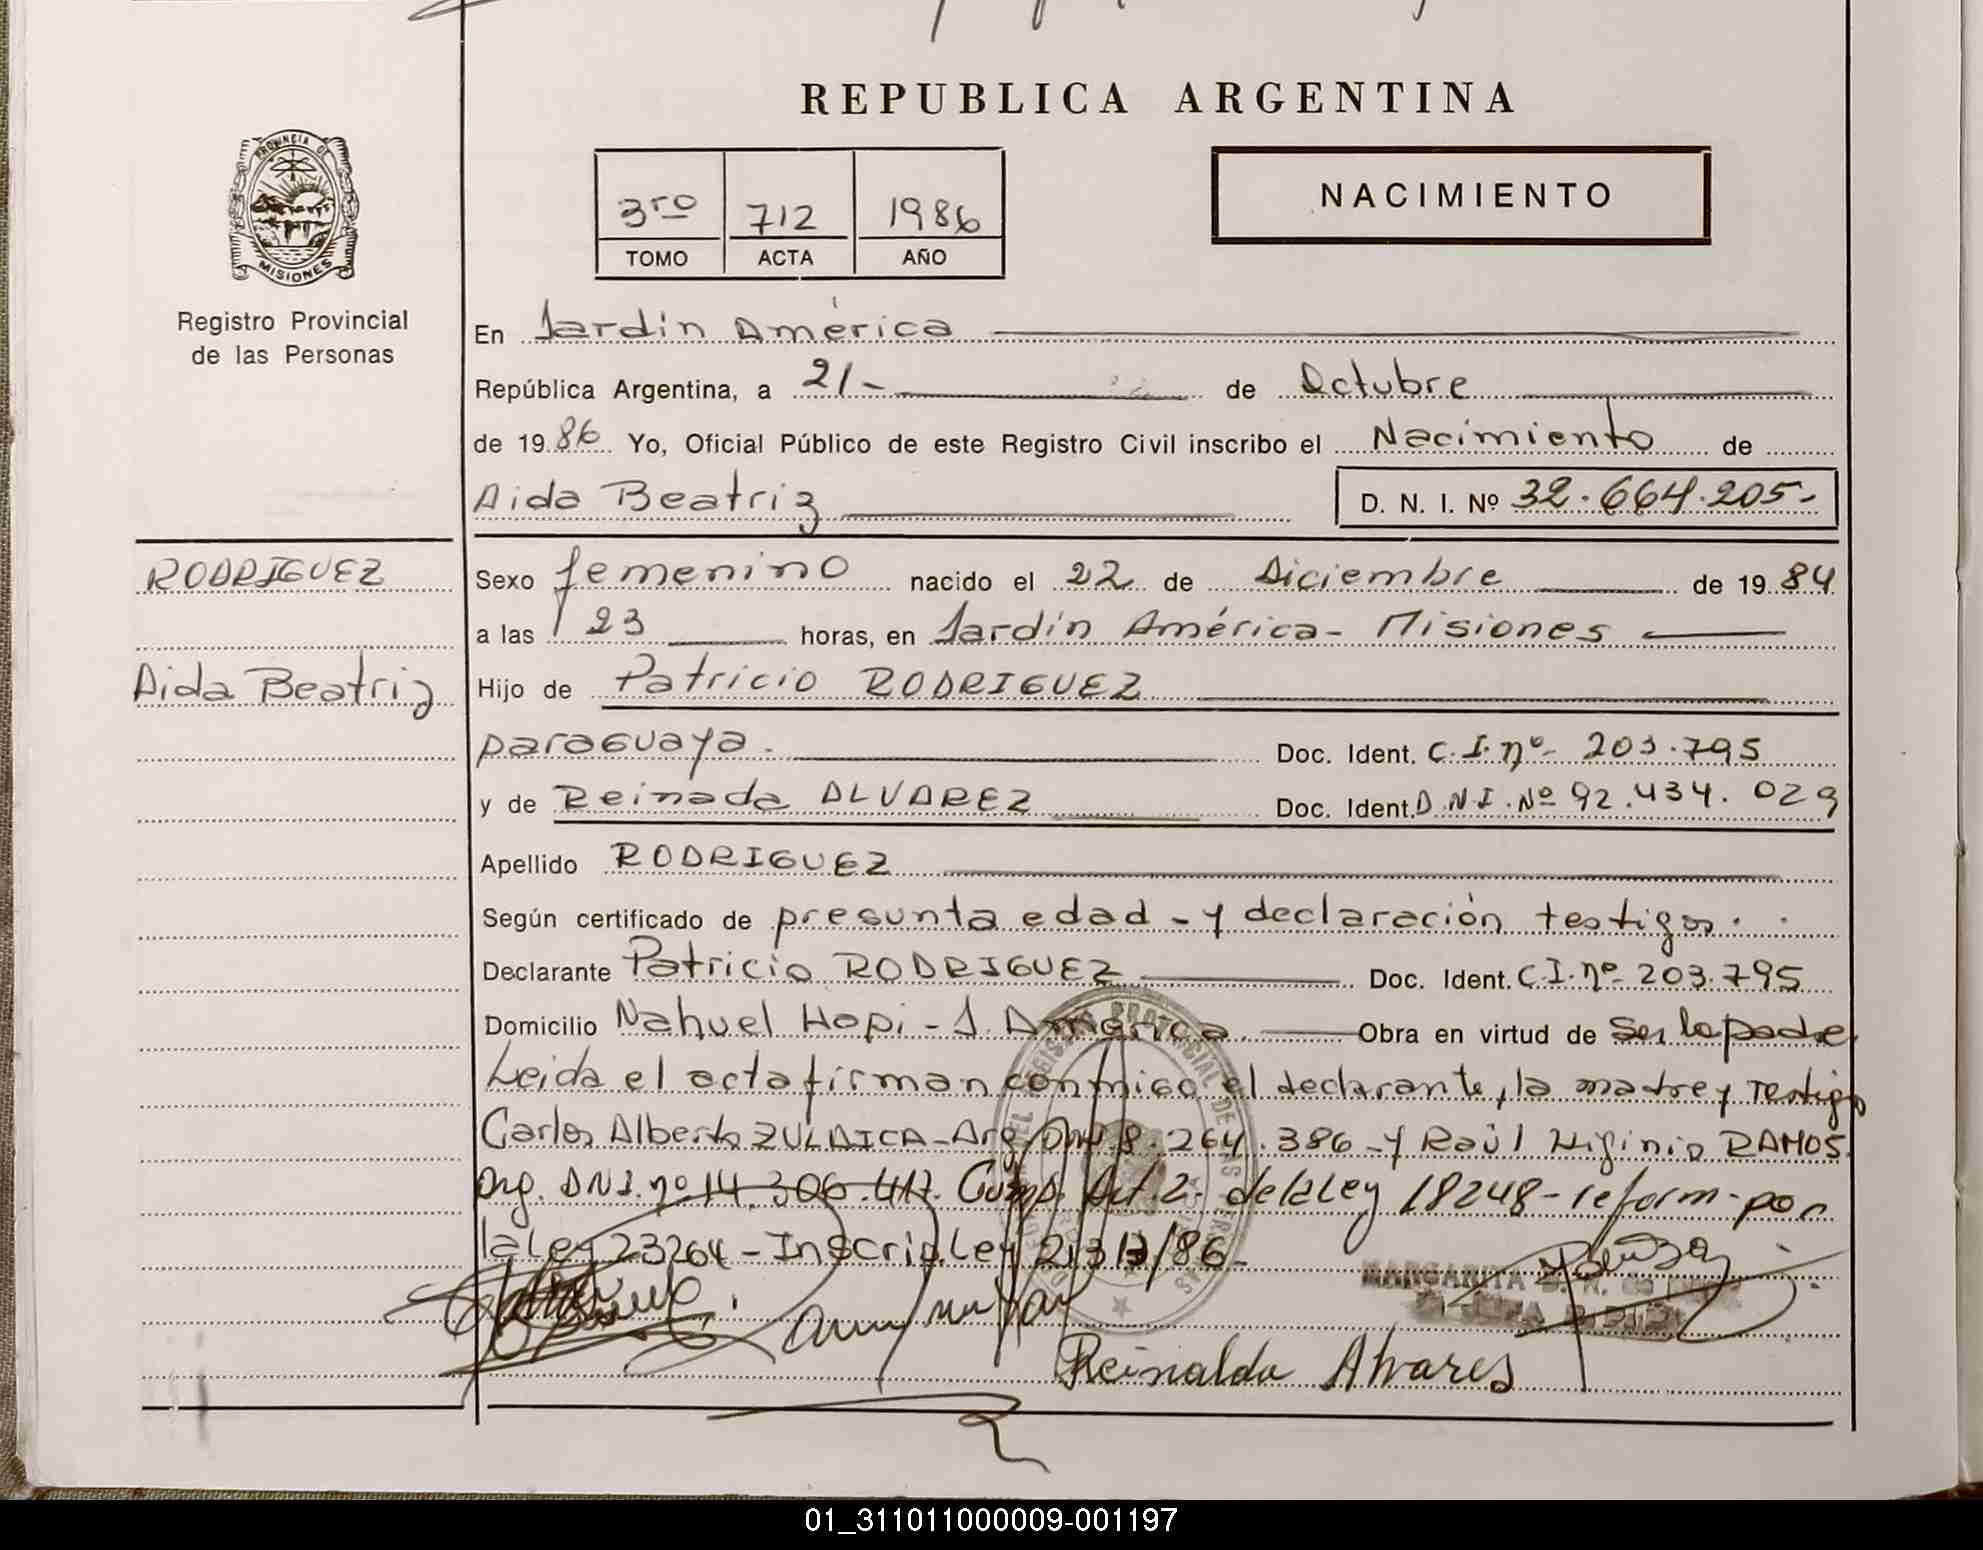 REPUBLICA ARGENTINA
PROVINCIA DE
MISIONES
Registro Provincial
de las Personas
3ro 712 1986
TOMO ACTA AÑO
NACIMIENTO
En Jardín América
República Argentina, a 21- de Octubre
de 19 86 Yo, Oficial Público de este Registro Civil inscribo el Nacimiento de
Aida Beatriz D. N. I. Nº 32.664.205-
RODRIGUEZ
Aida Beatriz
Sexo femenino nacido el 22 de Diciembre de 19 84
a las 23 horas, en Jardín América- Misiones
Hijo de Patricio RODRIGUEZ
paraguaya. Doc. Ident. C.I.nº- 203.795
y de Reinada ALVAREZ Doc. Ident. D.N.I.Nº 92.434.029
Apellido RODRIGUEZ
Según certificado de presunta edad - y declaración testigos.
Declarante Patricio RODRIGUEZ Doc. Ident. C.I.nº- 203.795
Domicilio Nahuel Hopi - J. América Obra en virtud de Ser la padre
Leida el acta firman conmigo el declarante, la madre y Testigo
Carlos Alberto ZULAICA-Arg DNI 8.264.386-y Raúl Higinio RAMOS
Arg. DNI.nº 14.306.417. Cump. Art. 2. de la Ley 18248-reform-por
la Ley 23264-Inscrip.Ley 21313/86-
MARGARITA
Reinalda Alvares
01_311011000009-001197